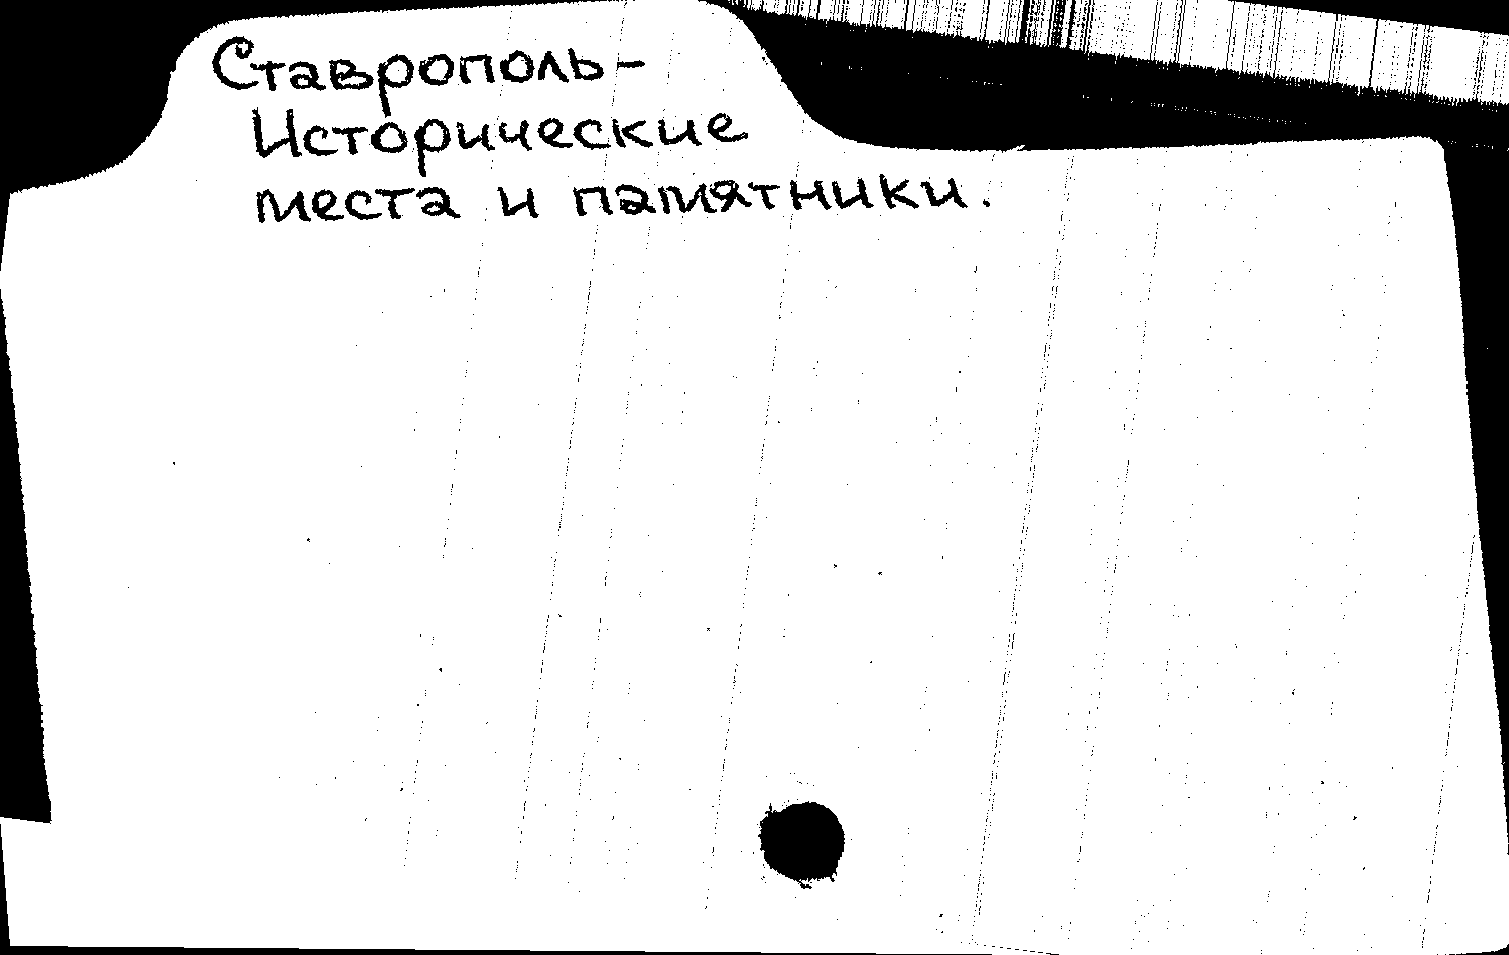 Ставрополь-
Исторические
места и памятники.